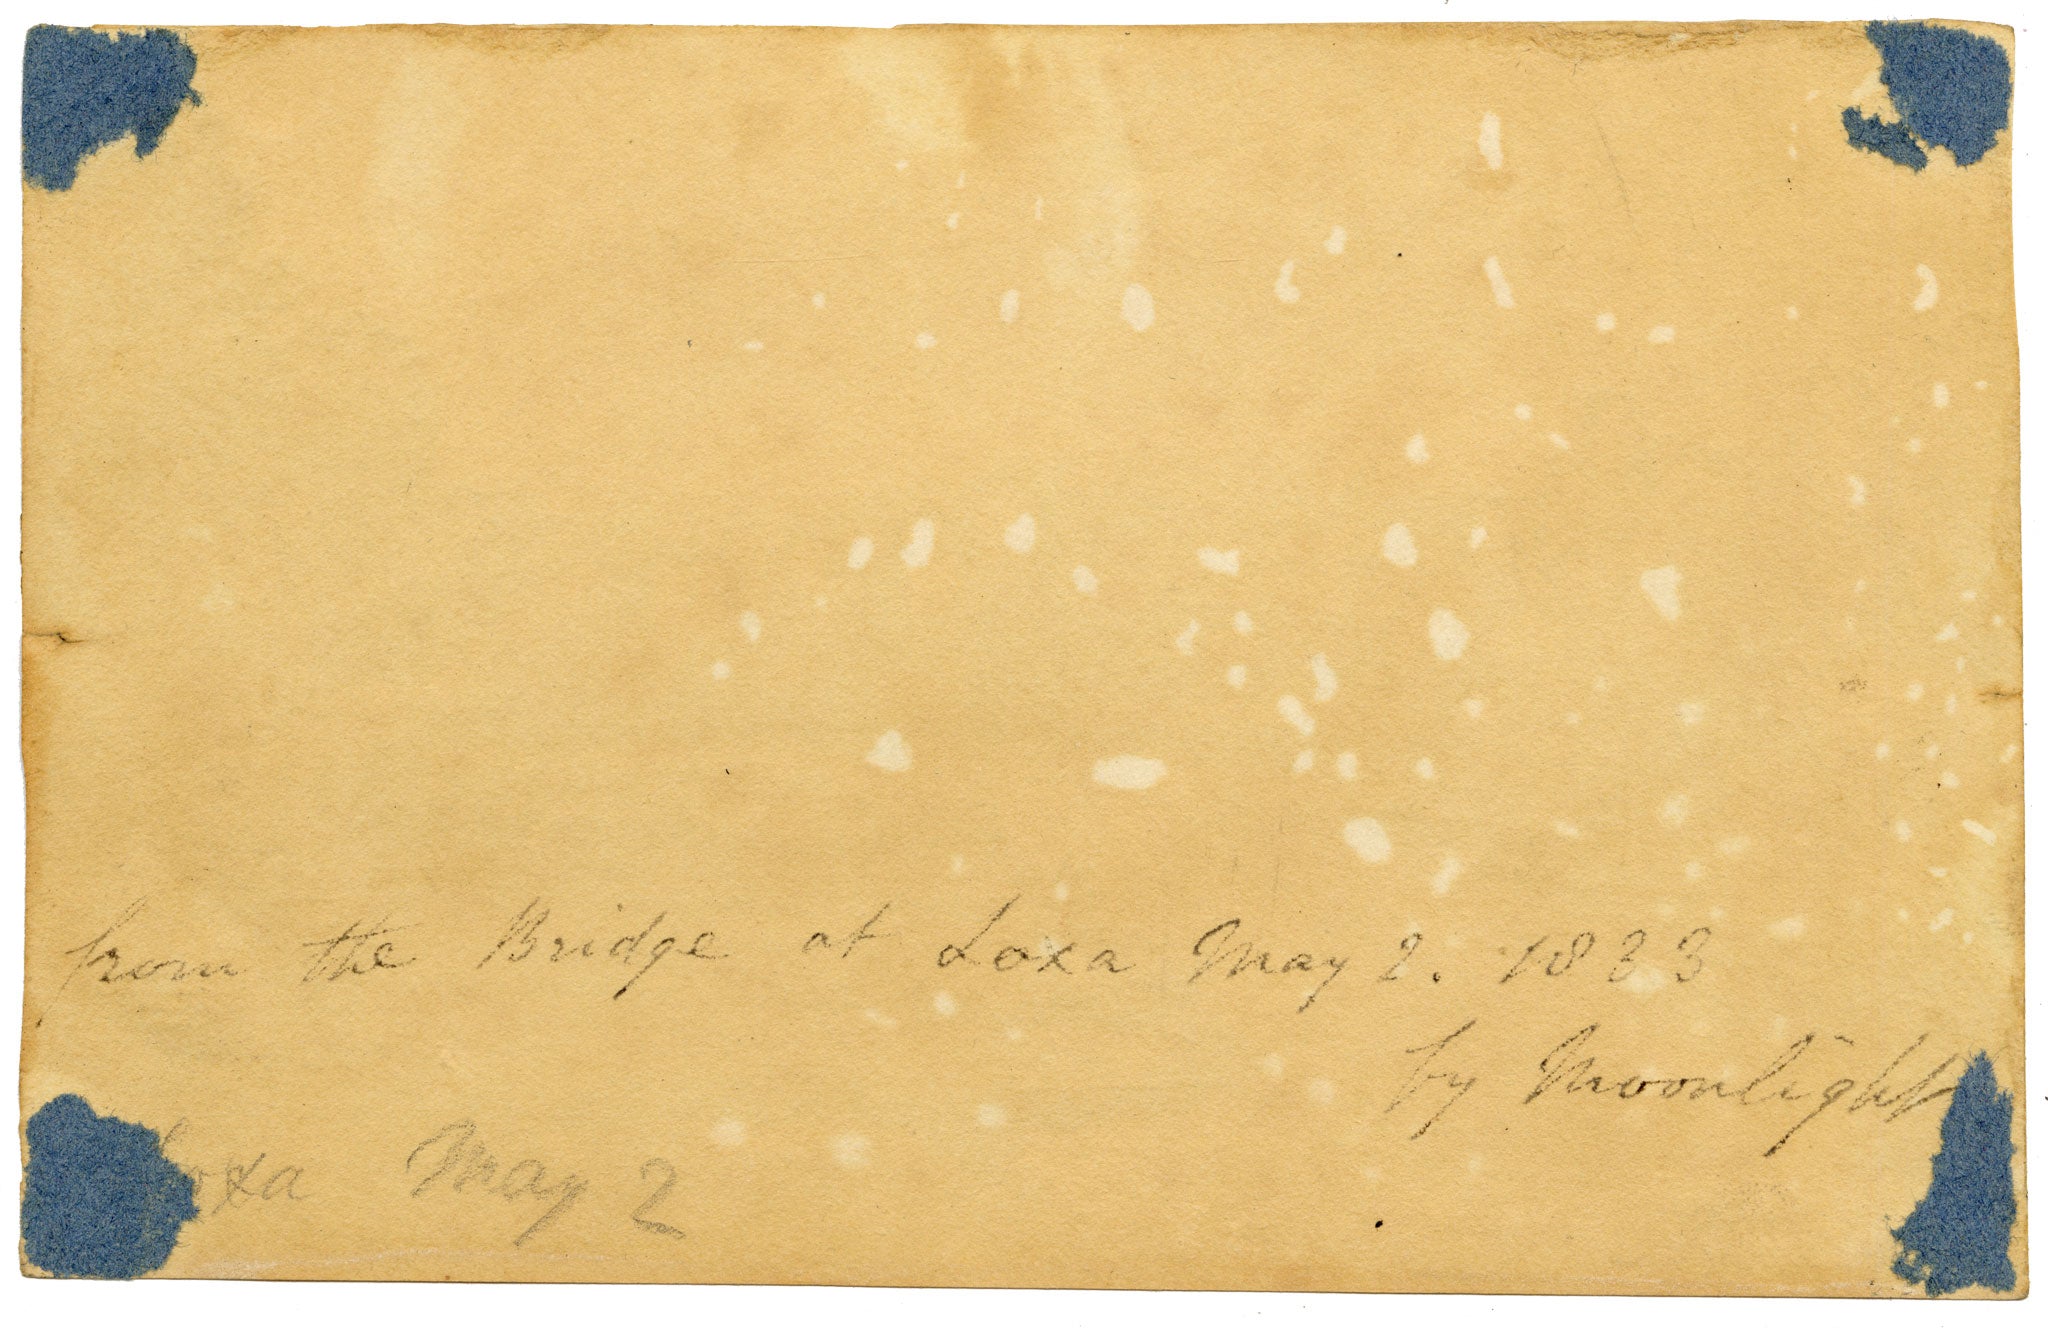 from the Bridge at Loxa May 2. 1833
by Moonlight
Loxa May 2